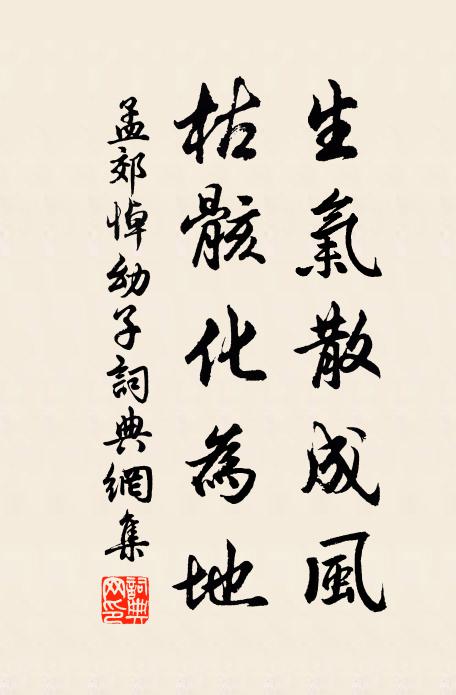 生氣散成風
枯骸化為地
孟郊悼幼子詞典網集
詞典网印